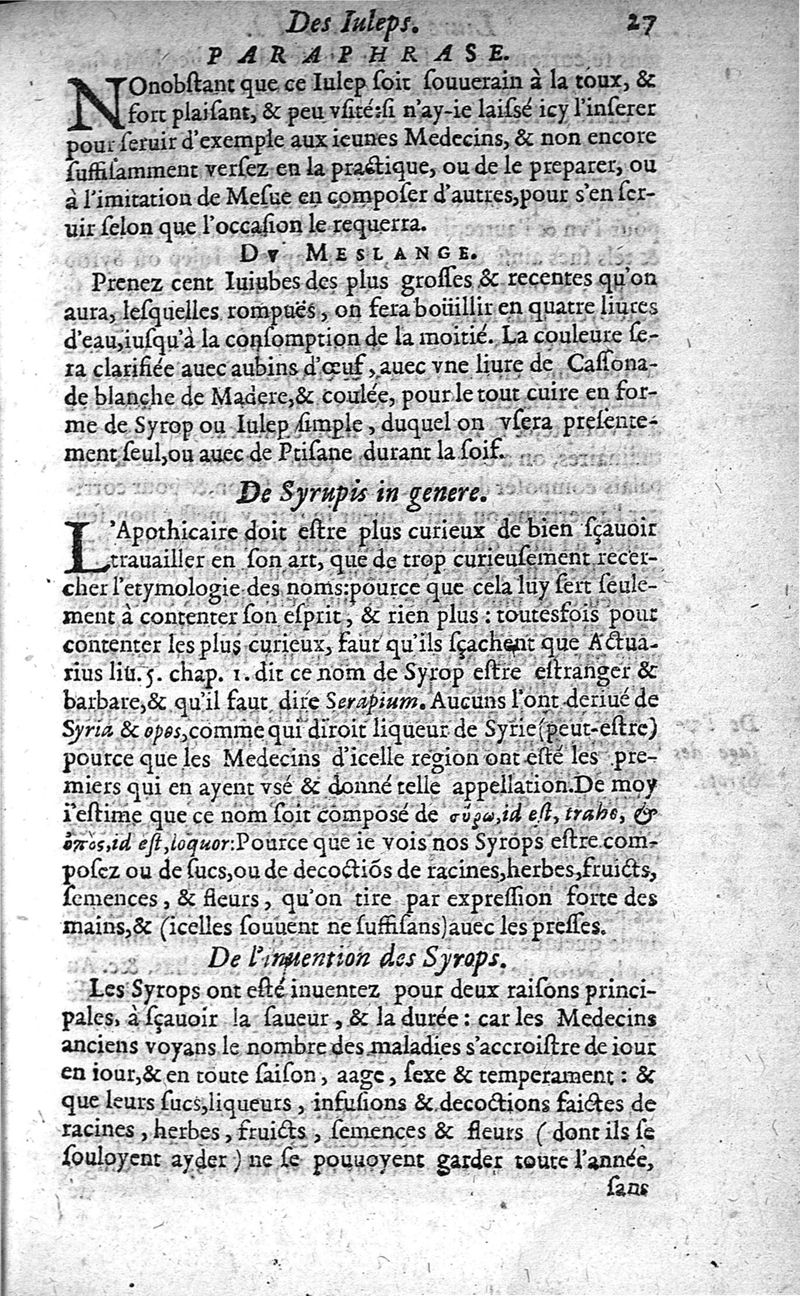 Des Iuleps. 27
PARAPHRASE.
NOnobſtant que ce Iulep ſoit ſouuerain à la toux, &
fort plaiſant, & peu vſité:ſi n'ay-ie laiſſé icy l'inſerer
pour ſeruir d'exemple aux ieunes Medecins, & non encore
ſuffiſamment verſez en la practique, ou de le preparer, ou
à l'imitation de Meſue en compoſer d'autres,pour s'en ſer-
uir ſelon que l'occaſion le requerra.
DV MESLANGE.
Prenez cent Iuiubes des plus groſſes & recentes qu'on
aura, leſquelles rompuës, on fera boüillir en quatre liures
d'eau,iuſqu'à la conſomption de la moitié. La couleure ſe-
ra clarifiée auec aubins d'œuf, auec vne liure de Caſſona-
de blanche de Madere,& coulée, pour le tout cuire en for-
me de Syrop ou Iulep ſimple, duquel on vſera preſente-
ment ſeul,ou auec de Ptiſane durant la ſoif.
De Syrupis in genere.
L'Apothicaire doit eſtre plus curieux de bien ſçauoir
trauailler en ſon art, que de trop curieuſement recer-
cher l'etymologie des noms:pource que cela luy ſert ſeule-
ment à contenter ſon eſprit, & rien plus : toutesfois pour
contenter les plus curieux, faut qu'ils ſçachent que Actua-
rius liu. 5. chap. 1. dit ce nom de Syrop eſtre eſtranger &
barbare,& qu'il faut dire Serapium. Aucuns l'ont deriué de
Syria & opos,comme qui diroit liqueur de Syrie(peut-eſtre)
pource que les Medecins d'icelle region ont eſté les pre-
miers qui en ayent vſé & donné telle appellation.De moy
i'eſtime que ce nom ſoit compoſé de σύρω,id eſt, trahe, &
ὀπὸς,id eſt,loquor:Pource que ie vois nos Syrops eſtre com-
poſez ou de ſucs,ou de decoctiõs de racines,herbes,fruicts,
ſemences, & fleurs, qu'on tire par expreſſion forte des
mains,& (icelles ſouuent ne ſuffiſans)auec les preſſes.
De l'inuention des Syrops.
Les Syrops ont eſté inuentez pour deux raiſons princi-
pales, à ſçauoir la ſaueur, & la durée : car les Medecins
anciens voyans le nombre des maladies s'accroiſtre de iour
en iour,& en toute ſaiſon, aage, ſexe & temperament : &
que leurs ſucs,liqueurs, infuſions & decoctions faictes de
racines, herbes, fruicts, ſemences & fleurs (dont ils ſe
ſouloyent ayder) ne ſe pouuoyent garder toute l'année,
ſans